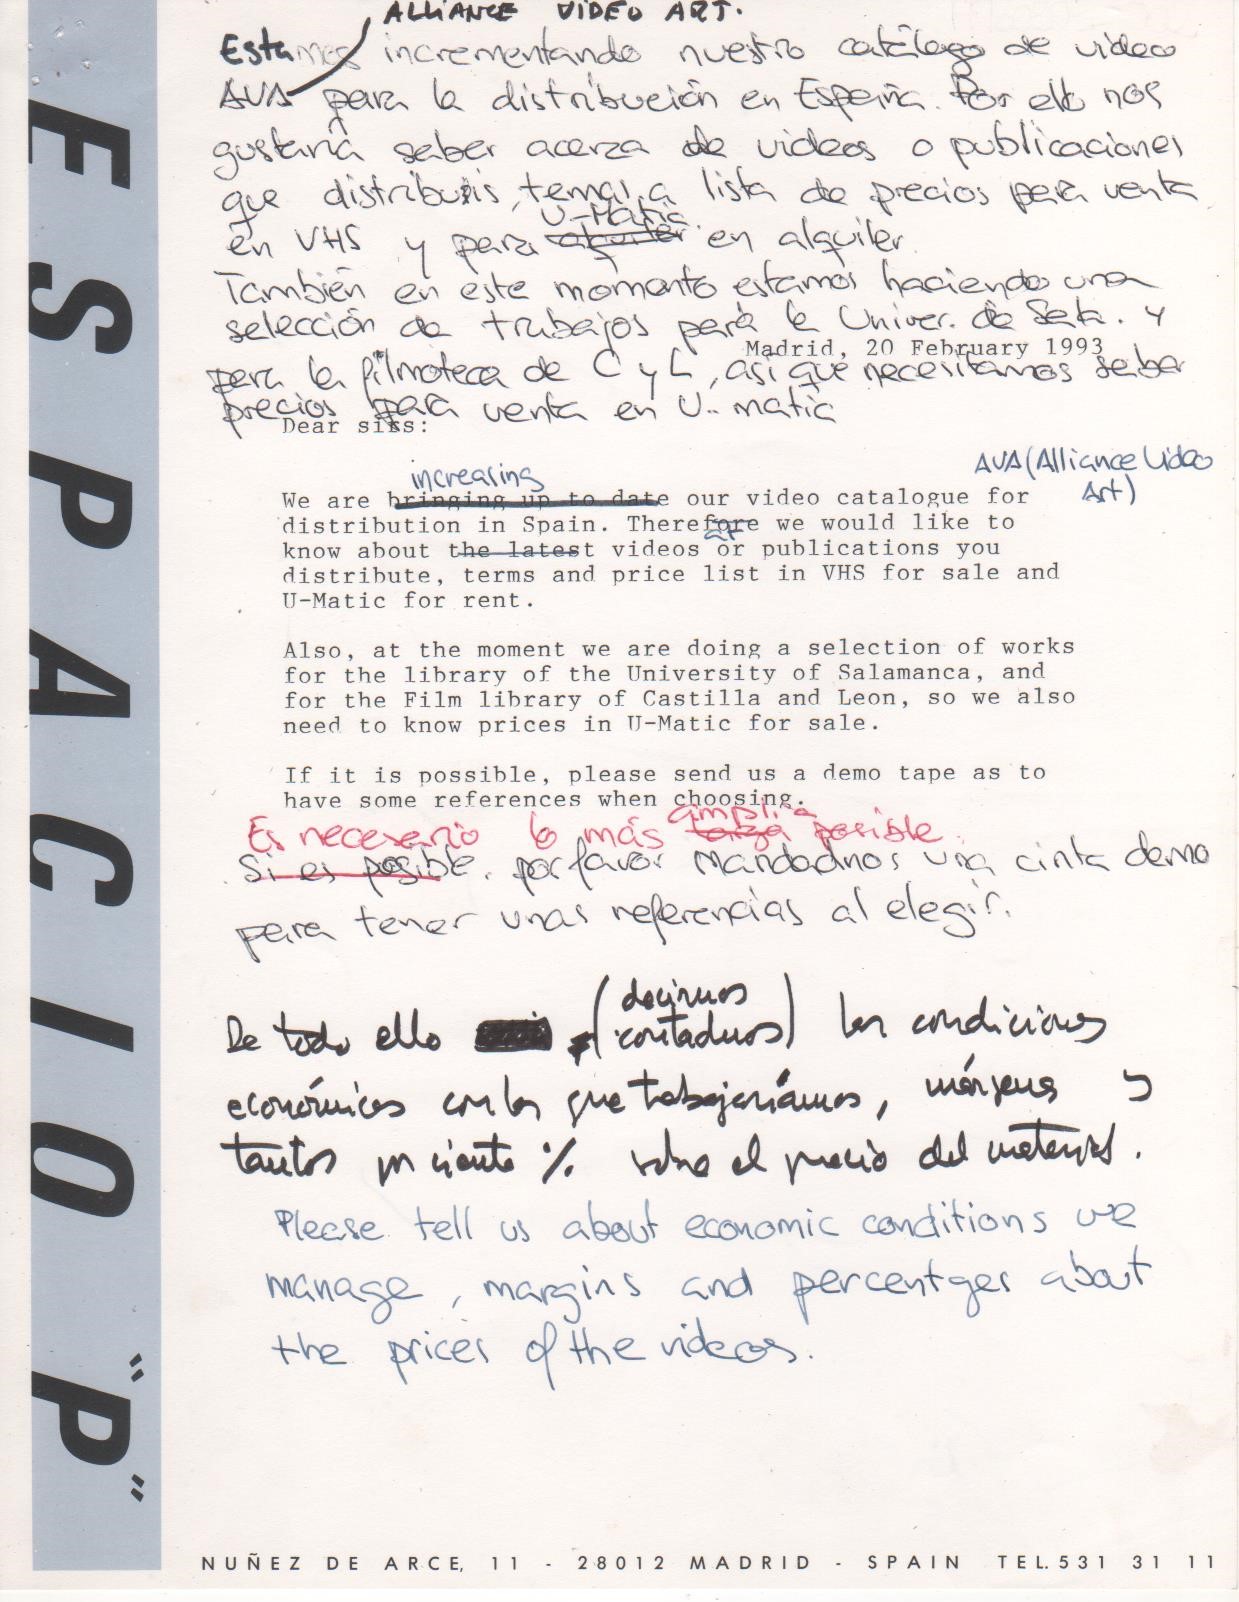 ALLIANCE VIDEO ART.
Estamos incrementando nuestro catálogo de video
AVA para la distribución en España. Por ello nos
gustaría saber acerza de videos o publicaciones
que distribuis, temas, a lista de precios para venta
U-Matic
en VHS y para alquiler en alquiler.
También en este momento estamos haciendo una
selección de trabajos para la Univer. de Sala. y
Madrid, 20 February 1993
para la filmoteca de C y L, asi que necesitamos saber
precios para venta en U-matic
Dear sirs:
AVA (Alliance Video
Art)
increasing
We are bringing up to date our video catalogue for
distribution in Spain. Therefore we would like to
know about the latest videos or publications you
distribute, terms and price list in VHS for sale and
U-Matic for rent.
Also, at the moment we are doing a selection of works
for the library of the University of Salamanca, and
for the Film library of Castilla and Leon, so we also
need to know prices in U-Matic for sale.
If it is possible, please send us a demo tape as to
have some references when choosing.
amplia
Es necesario lo más larga posible.
Si es posible, por favor mandadnos una cinta demo
para tener unas referencias al elegir.
decirnos
De todo ello (contadnos) las condiciones
económicas con las que trabajaríamos, márgenes y
tantos por ciento % sobre el precio del material.
Please tell us about economic conditions we
manage, margins and percentges about
the prices of the videos.
ESPACIO "P"
NUÑEZ DE ARCE, 11 - 28012 MADRID - SPAIN TEL. 531 31 11